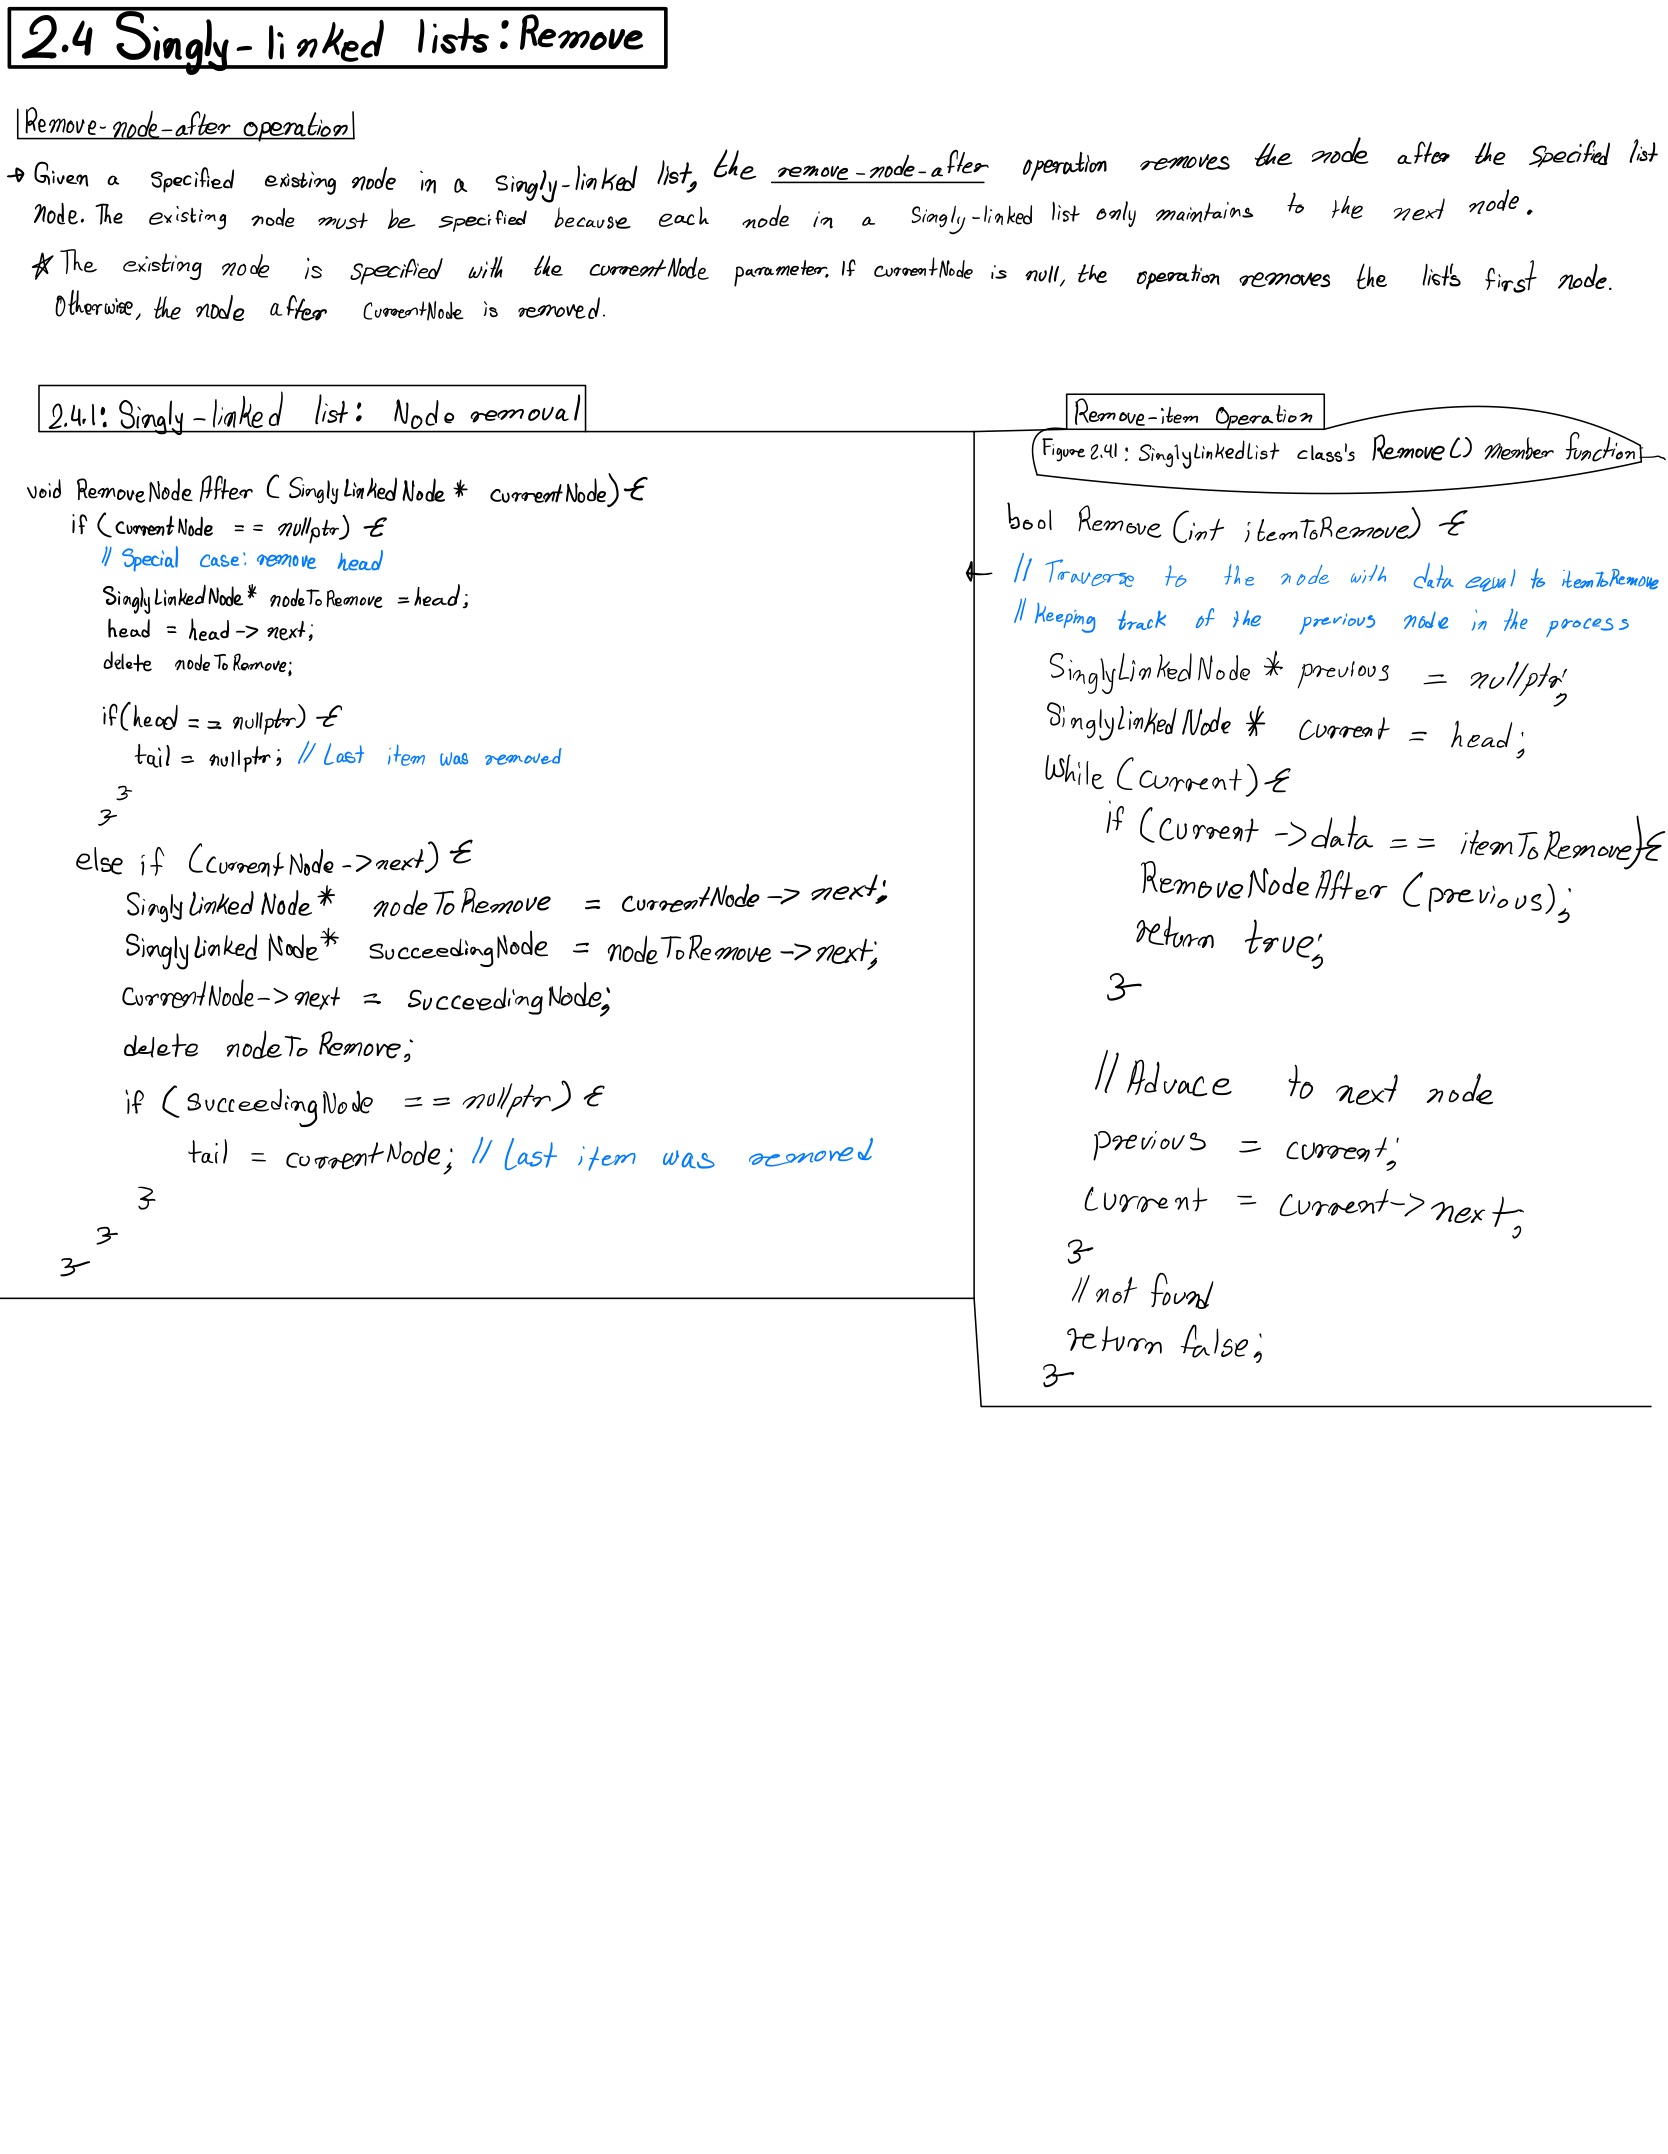 2.4 Singly-linked lists: Remove
Remove-node-after operation
→ Given a specified existing node in a singly-linked list, the remove-node-after operation removes the node after the specified list
node. The existing node must be specified because each node in a singly-linked list only maintains to the next node.
☆ The existing node is specified with the currentNode parameter. If currentNode is null, the operation removes the list's first node.
Otherwise, the node after currentNode is removed.
2.4.1: Singly-linked list: Node removal
void RemoveNodeAfter (SinglyLinkedNode* currentNode) {
if (currentNode == nullptr) {
// Special case: remove head
SinglyLinkedNode* nodeToRemove = head;
head = head->next;
delete nodeToRemove;
if(head == nullptr) {
tail = nullptr; // Last item was removed
}
}
else if (currentNode->next) {
SinglyLinkedNode* nodeToRemove = currentNode->next;
SinglyLinkedNode* succeedingNode = nodeToRemove->next;
currentNode->next = succeedingNode;
delete nodeToRemove;
if (succeedingNode == nullptr) {
tail = currentNode; // Last item was removed
}
}
}
Remove-item Operation
Figure 2.41: SinglyLinkedList class's Remove() member function
bool Remove (int itemToRemove) {
// Traverse to the node with data equal to itemToRemove
// Keeping track of the previous node in the process
SinglyLinkedNode* previous = nullptr;
SinglyLinkedNode* current = head;
while (current) {
if (current->data == itemToRemove) {
RemoveNodeAfter (previous);
return true;
}
// Advace to next node
previous = current;
current = current->next;
}
// not found
return false;
}